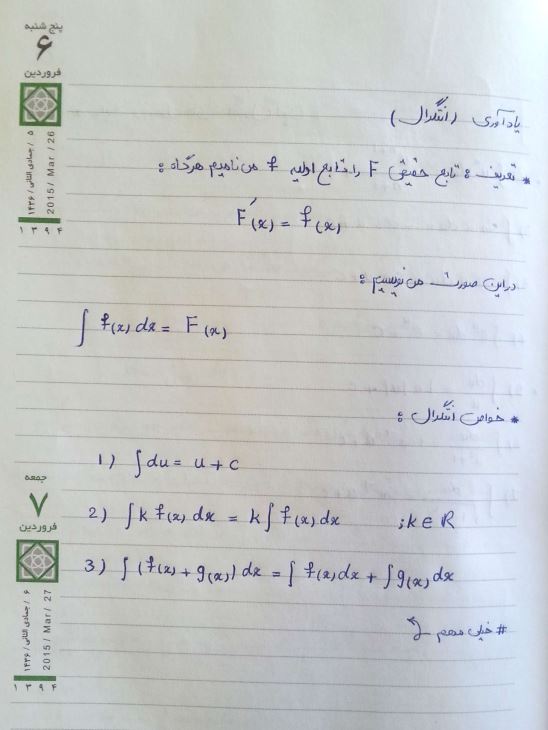 پنج شنبه
۶
فروردین
۵ / جمادی الثانی / ۱۴۳۶
2015 / Mar / 26
۱۳۹۴
یادآوری (انتگرال)
* تعریف : تابع حقیقی F را تابع اولیه f می نامیم هرگاه :
F′(x) = f(x)
در این صورت می نویسیم :
∫ f(x) dx = F(x)
* خواص انتگرال :
1) ∫ du = u + c
جمعه
۷
فروردین
۶ / جمادی الثانی / ۱۴۳۶
2015 / Mar / 27
۱۳۹۴
2) ∫ k f(x) dx = k ∫ f(x) dx ; k ∈ ℝ
3) ∫ (f(x) + g(x)) dx = ∫ f(x) dx + ∫ g(x) dx
# خیلی مهم